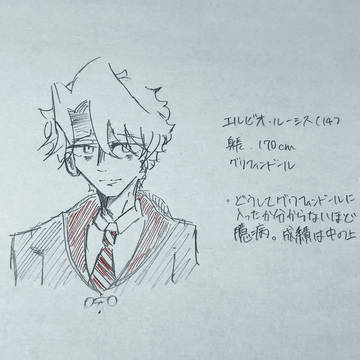 エルビオ・ルーシス(14)
身長 170cm
グリフィンドール
・どうしてグリフィンドールに
入ったか分からないほど
臆病。成績は中の上